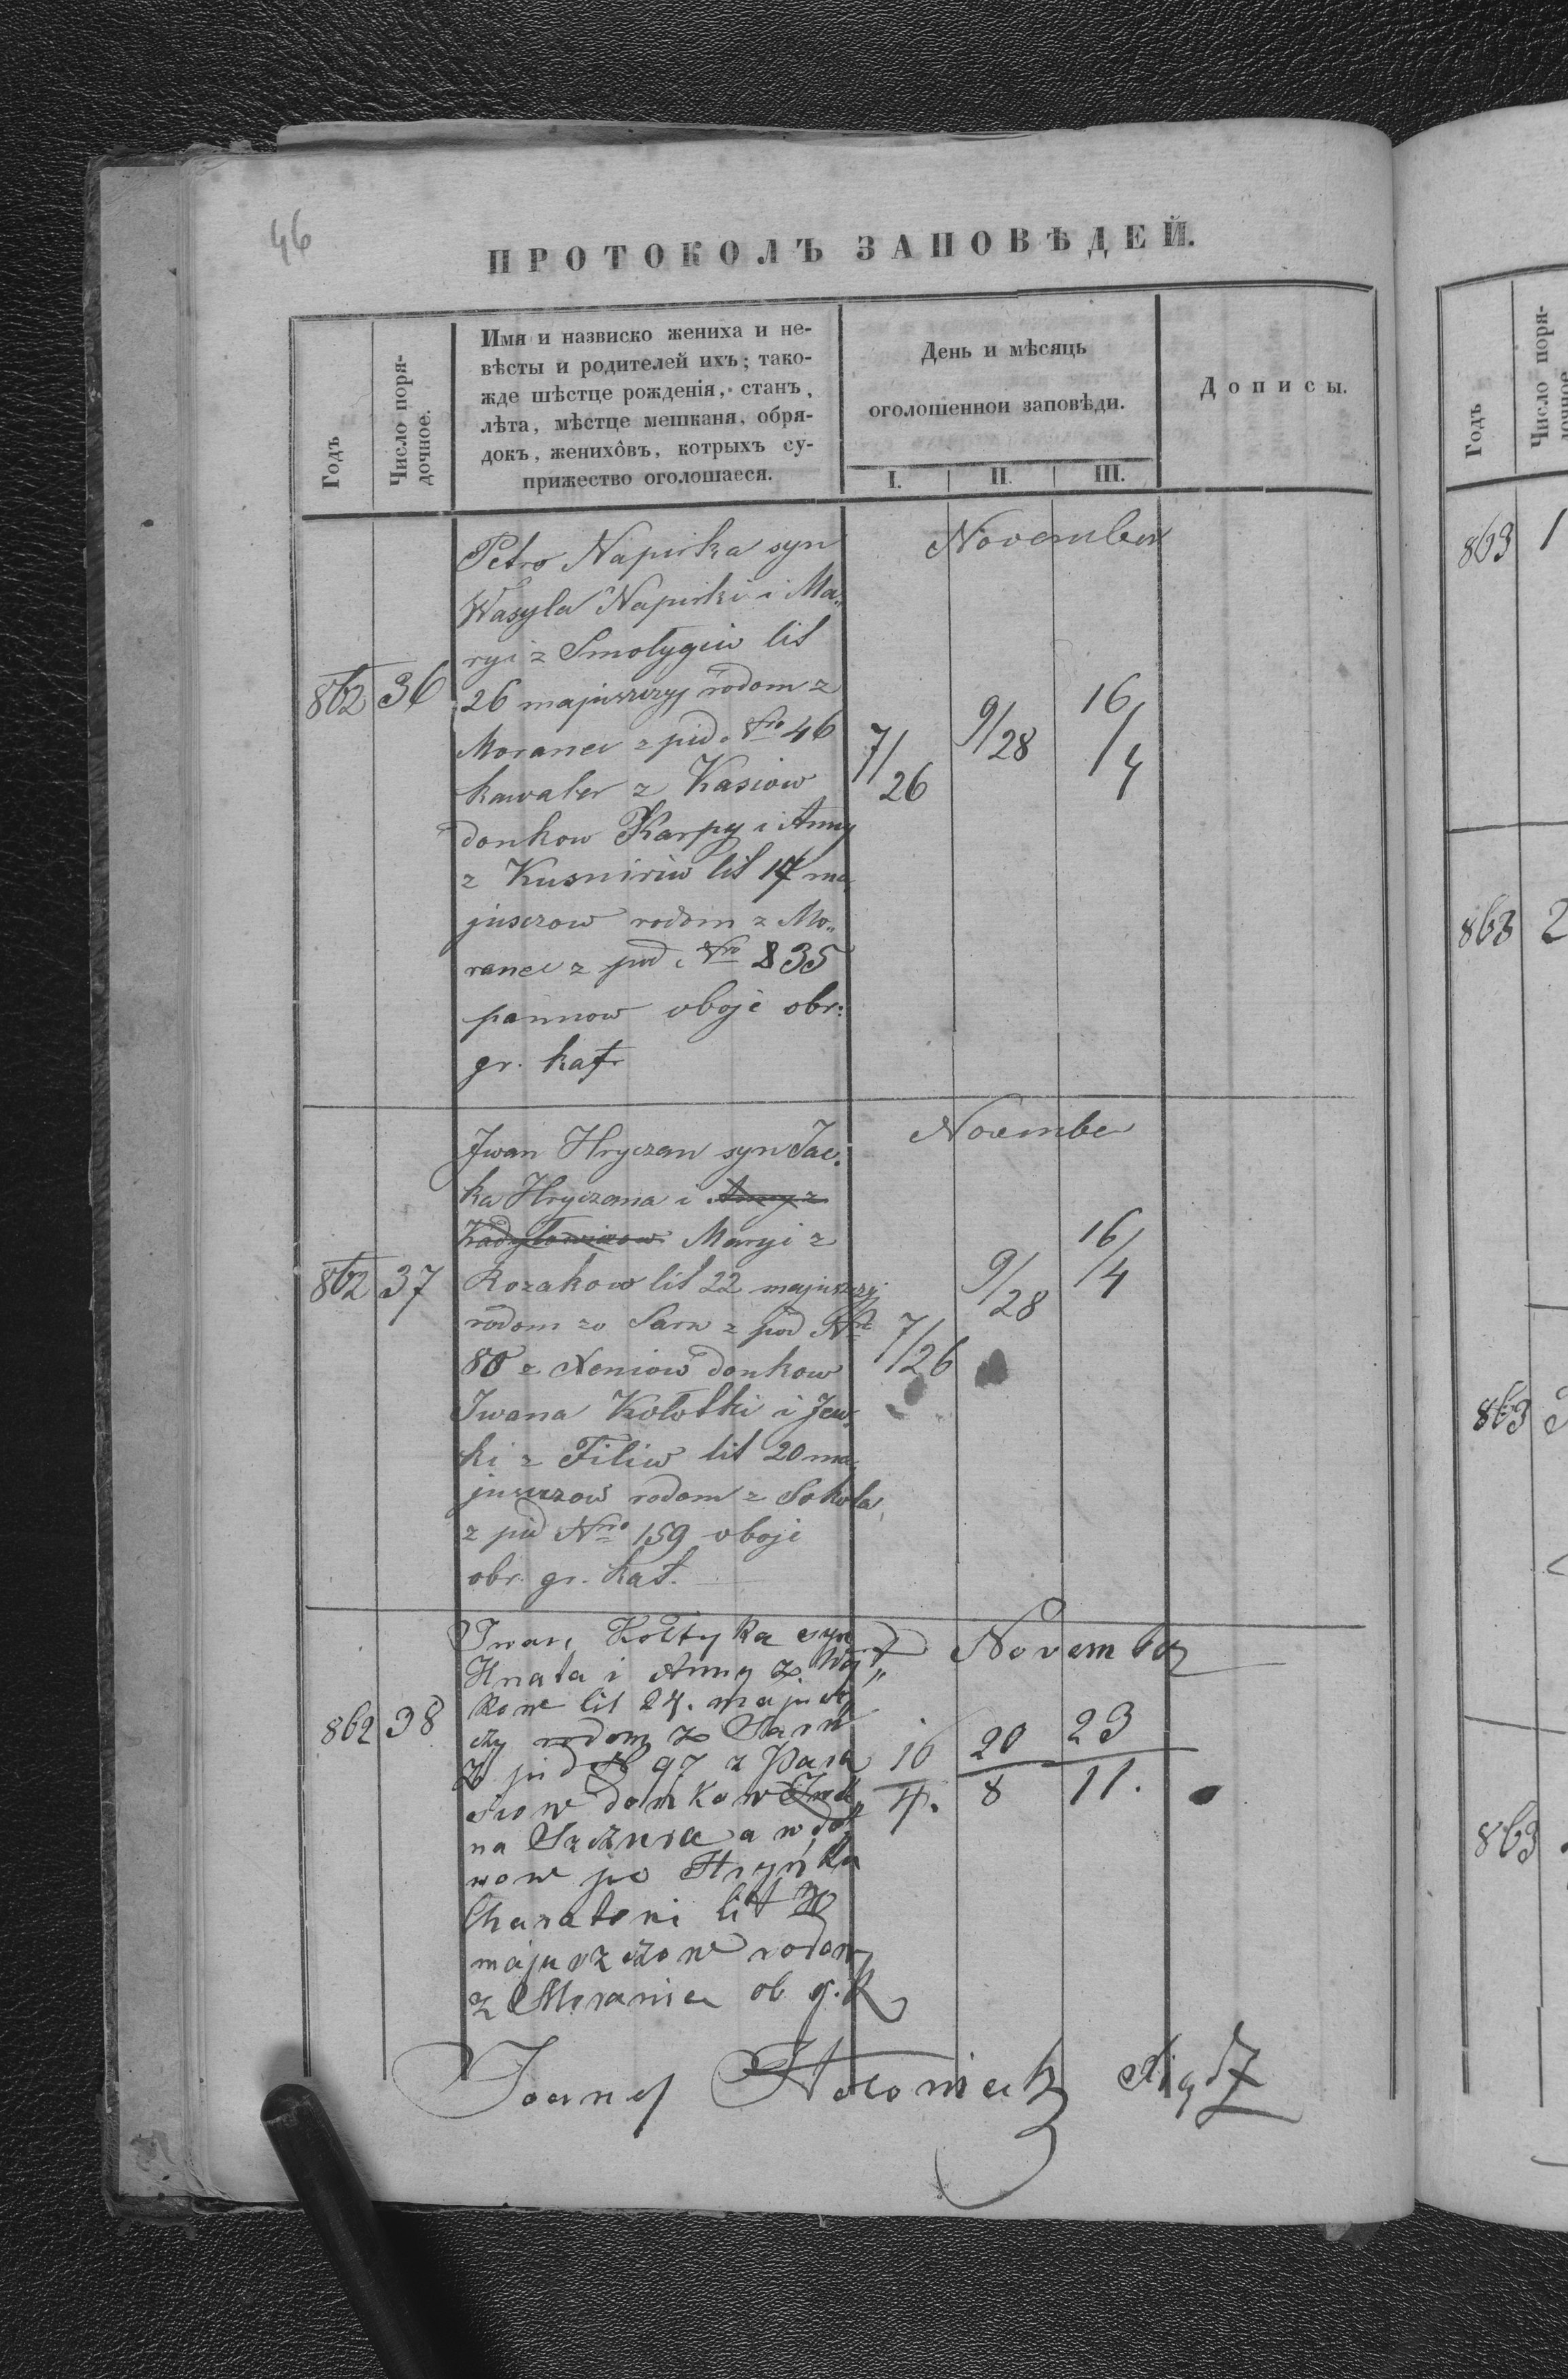 46
ПРОТОКОЛЪ ЗАПОВѢДЕЙ.
Годъ
Число поря-
дочное.
Имя и назвиско жениха и не-
вѣсты и родителей ихъ; тако-
жде шѣстце рожденія, станъ,
лѣта, мѣстце мешканя, обря-
докъ, женихôвъ, котрыхъ су-
прижество оголошаеся.
День и мѣсяць
оголошеннои заповѣди.
I. II. III.
Дописы.
862 36
Petro Napirka syn
Wasyla Napirki i Ma„
ryi z Smolygiw lit
26 majuszczyj rodom z
Moraneć z pid Nro 46
kawaler z Kasiow
donkow Karpy i Anny
z Kusniriw lit 17 ma„
juszczow rodom z Mo„
raneć z pod Nro 835
pannow oboje obr:
gr. kat.
November
7/26 9/28 16/4
862 37
Iwan Hryczan syn Jac„
ka Hryczana i Anny z
Maryi z
Kozakow lit 22 majuszczyj
rodom zo Sarn z pod Nro
80 z Xeniow donkow
Iwana Kołotki i Jew„
ki z Filiw lit 20 ma„
juszczow rodom z Sokola,
z pid Nro 159 oboje
obr. gr. kat.
November
7/26 9/28 16/4
862 38
Iwan Kołtyka syn
Hnata i Anny z
kow lit 24. majuszcz„
czy rodom z Sarn
z pid N 97 z Para
siow donkow Iwa„
na a wdo„
wow po Hryńka
Charatoni lit
majuszczow rodom
z Moraniec ob. g. K
November
16/4. 20/8 23/11.
Xiądz
863 1
863 2
863
863
Годъ
Число поря-
дочное